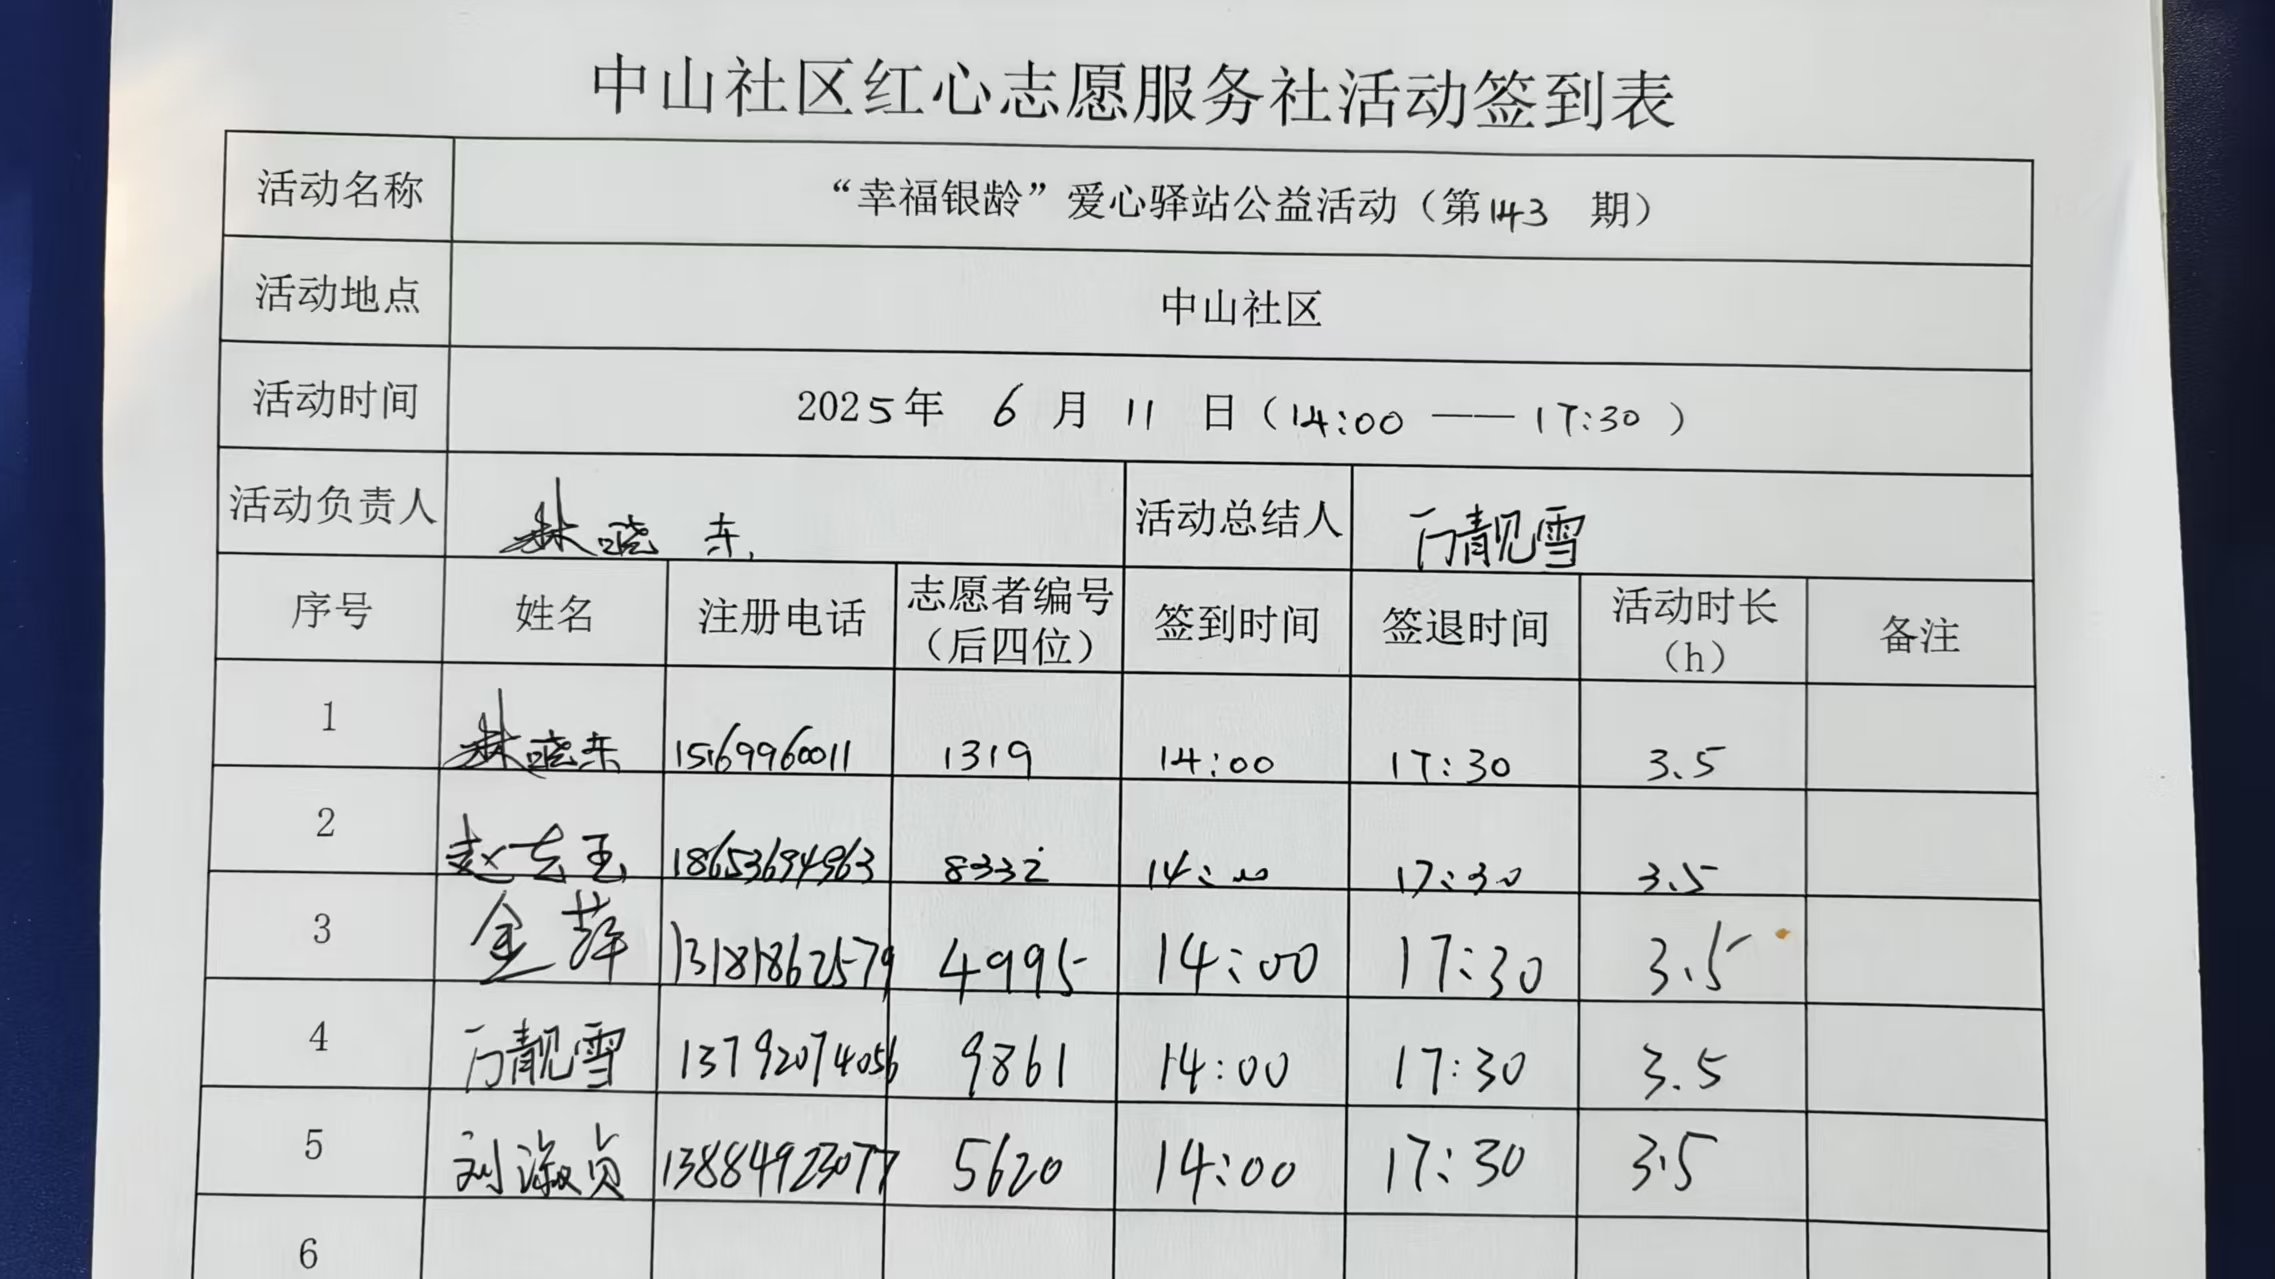 中山社区红心志愿服务社活动签到表
活动名称 “幸福银龄”爱心驿站公益活动（第143 期）
活动地点 中山社区
活动时间 2025年 6 月 11 日（14:00 —— 17:30 ）
活动负责人 林晓东 活动总结人 万靓雪
序号 姓名 注册电话 志愿者编号（后四位） 签到时间 签退时间 活动时长（h） 备注
1 林晓东 15169960011 1319 14:00 17:30 3.5
2 赵 玉 18653694963 8332 14:00 17:30 3.5
3 金萍 13181862579 4995 14:00 17:30 3.5
4 万靓雪 13792074056 9861 14:00 17:30 3.5
5 刘淑贞 13884923077 5620 14:00 17:30 3.5
6